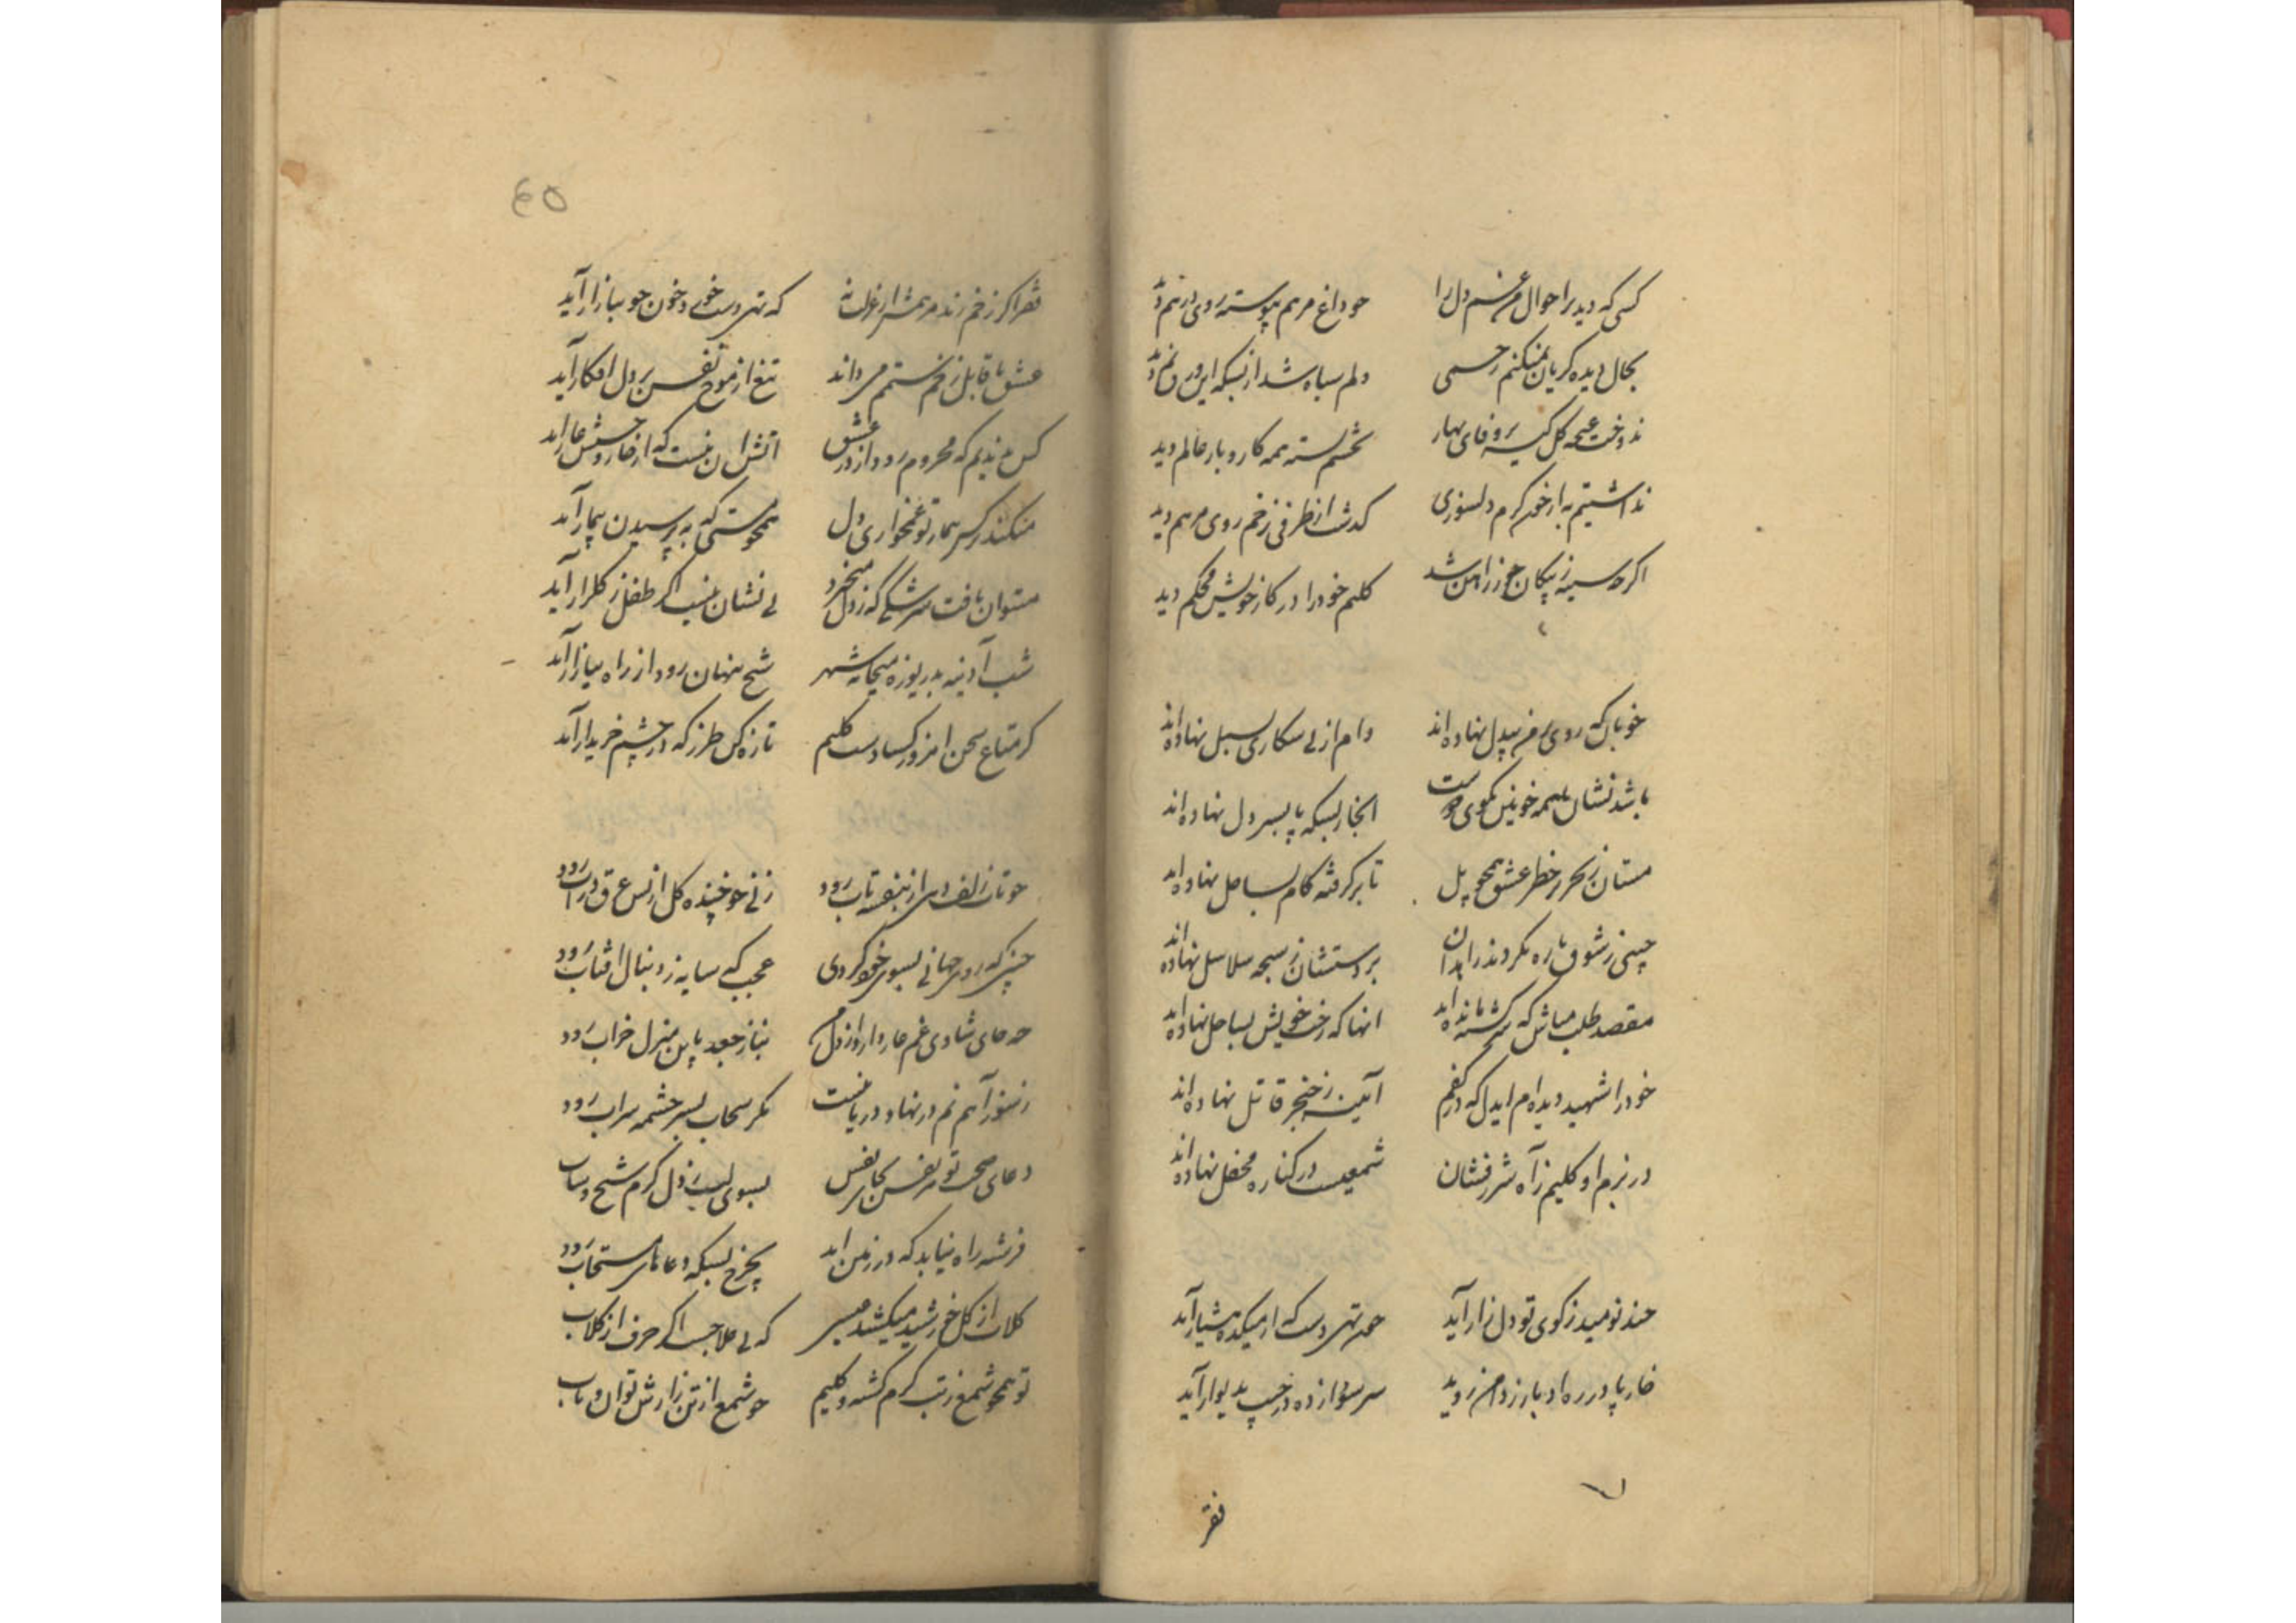 کسی که دید براحوال من غم دل را چو داغ مرهم پیوسته روی درهم دید
بحال دیده گریان نمیکنم رحمی دلم سیاه شد از بسکه این ورق نم دید
ندوخت غنچه گل کیسه بر وفای بهار بچشم بسته همه کاروبار عالم دید
نداشتیم به از خود کرم دلسوزی گذشت از طرفی زخم روی مرهم دید
اگرچه سینه ز پیکان آهن شد کلیم خود را در کار خویش محکم دید
خوبان که روی بر من بیدل نهاده اند دام از پی شکاری بسمل نهاده اند
باشد نشان خونین بکوی دوست انجا ز بسکه پا بسر دل نهاده اند
مستان ز بحر پر خطر عشق همچو پل تا بر گرفته گام بساحل نهاده اند
چینی ز شوق باره نکردند زاهدان بر دستشان ز سبحه سلاسل نهاده اند
مقصد طلب مباش که سرگشته مانده اند انها که رخت خویش بساحل نهاده اند
خود را شهید دیده ام ایدل که در کفم آیینه ز خنجر قاتل نهاده اند
در بزم او کلیم ز آه شررفشان شمعیست در کناره محفل نهاده اند
چند نومید ز کوی تو دل زار آید همه تهی دست که از میکده هشیار آید
خار پا در ره ادبار ز دامن روید سر سودا زده در جیب بدیوار آید
فقر
۴۵
فقر اگر زخم زند مرهمش از عزلت نه که تهی دست خورد خون چو ببازار آید
عشق تا قابل زخم ستمم میداند تیغ از موج نفس بر دل افکار آید
کس ندیدم که محروم رود از در عشق اتش ان نیست که از خار و خسش عار اید
میکند هر کس بیمار تو غمخواری دل همچو مستی که به پرسیدن بیمار آید
میتوان یافت سرشکی که ز دل میخیزد بی نشان نیست اگر طفل ز گلزار آید
شب آدینه بدریوزه میخانه شهر شیخ پنهان رود از راه ببازار آید
گر متاع سخن امروز کسادست کلیم تازه کن طرز که در چشم خریدار آید
چو تاب زلف وی از بنفشه تاب رود زنی چو خنده گل از بس عرق در آب رود
چنین که روی جهانی بسوی خود کردی عجب که سایه ز دنبال افتاب رود
چه جای شادی غم عار دارد از دل من نیاز جغد باین منزل خراب رود
ز سوز آهم نم در نهاد دریا نیست مگر سحاب بسر چشمه سراب رود
دعای صحت تو هر نفس ز گنج نفس بسوی لب ز دل گرم شیخ و شاب
فرشته راه نیابد که در زمین اید بچرخ بسکه دعاهای مستجاب رود
گلاب از گل خورشید میکشد عیسی که بی علاجست اگر حرف از گلاب
تو همچو شمع ز تب گرم گشته و کلیم چو شمع از تن زارش توان و تاب